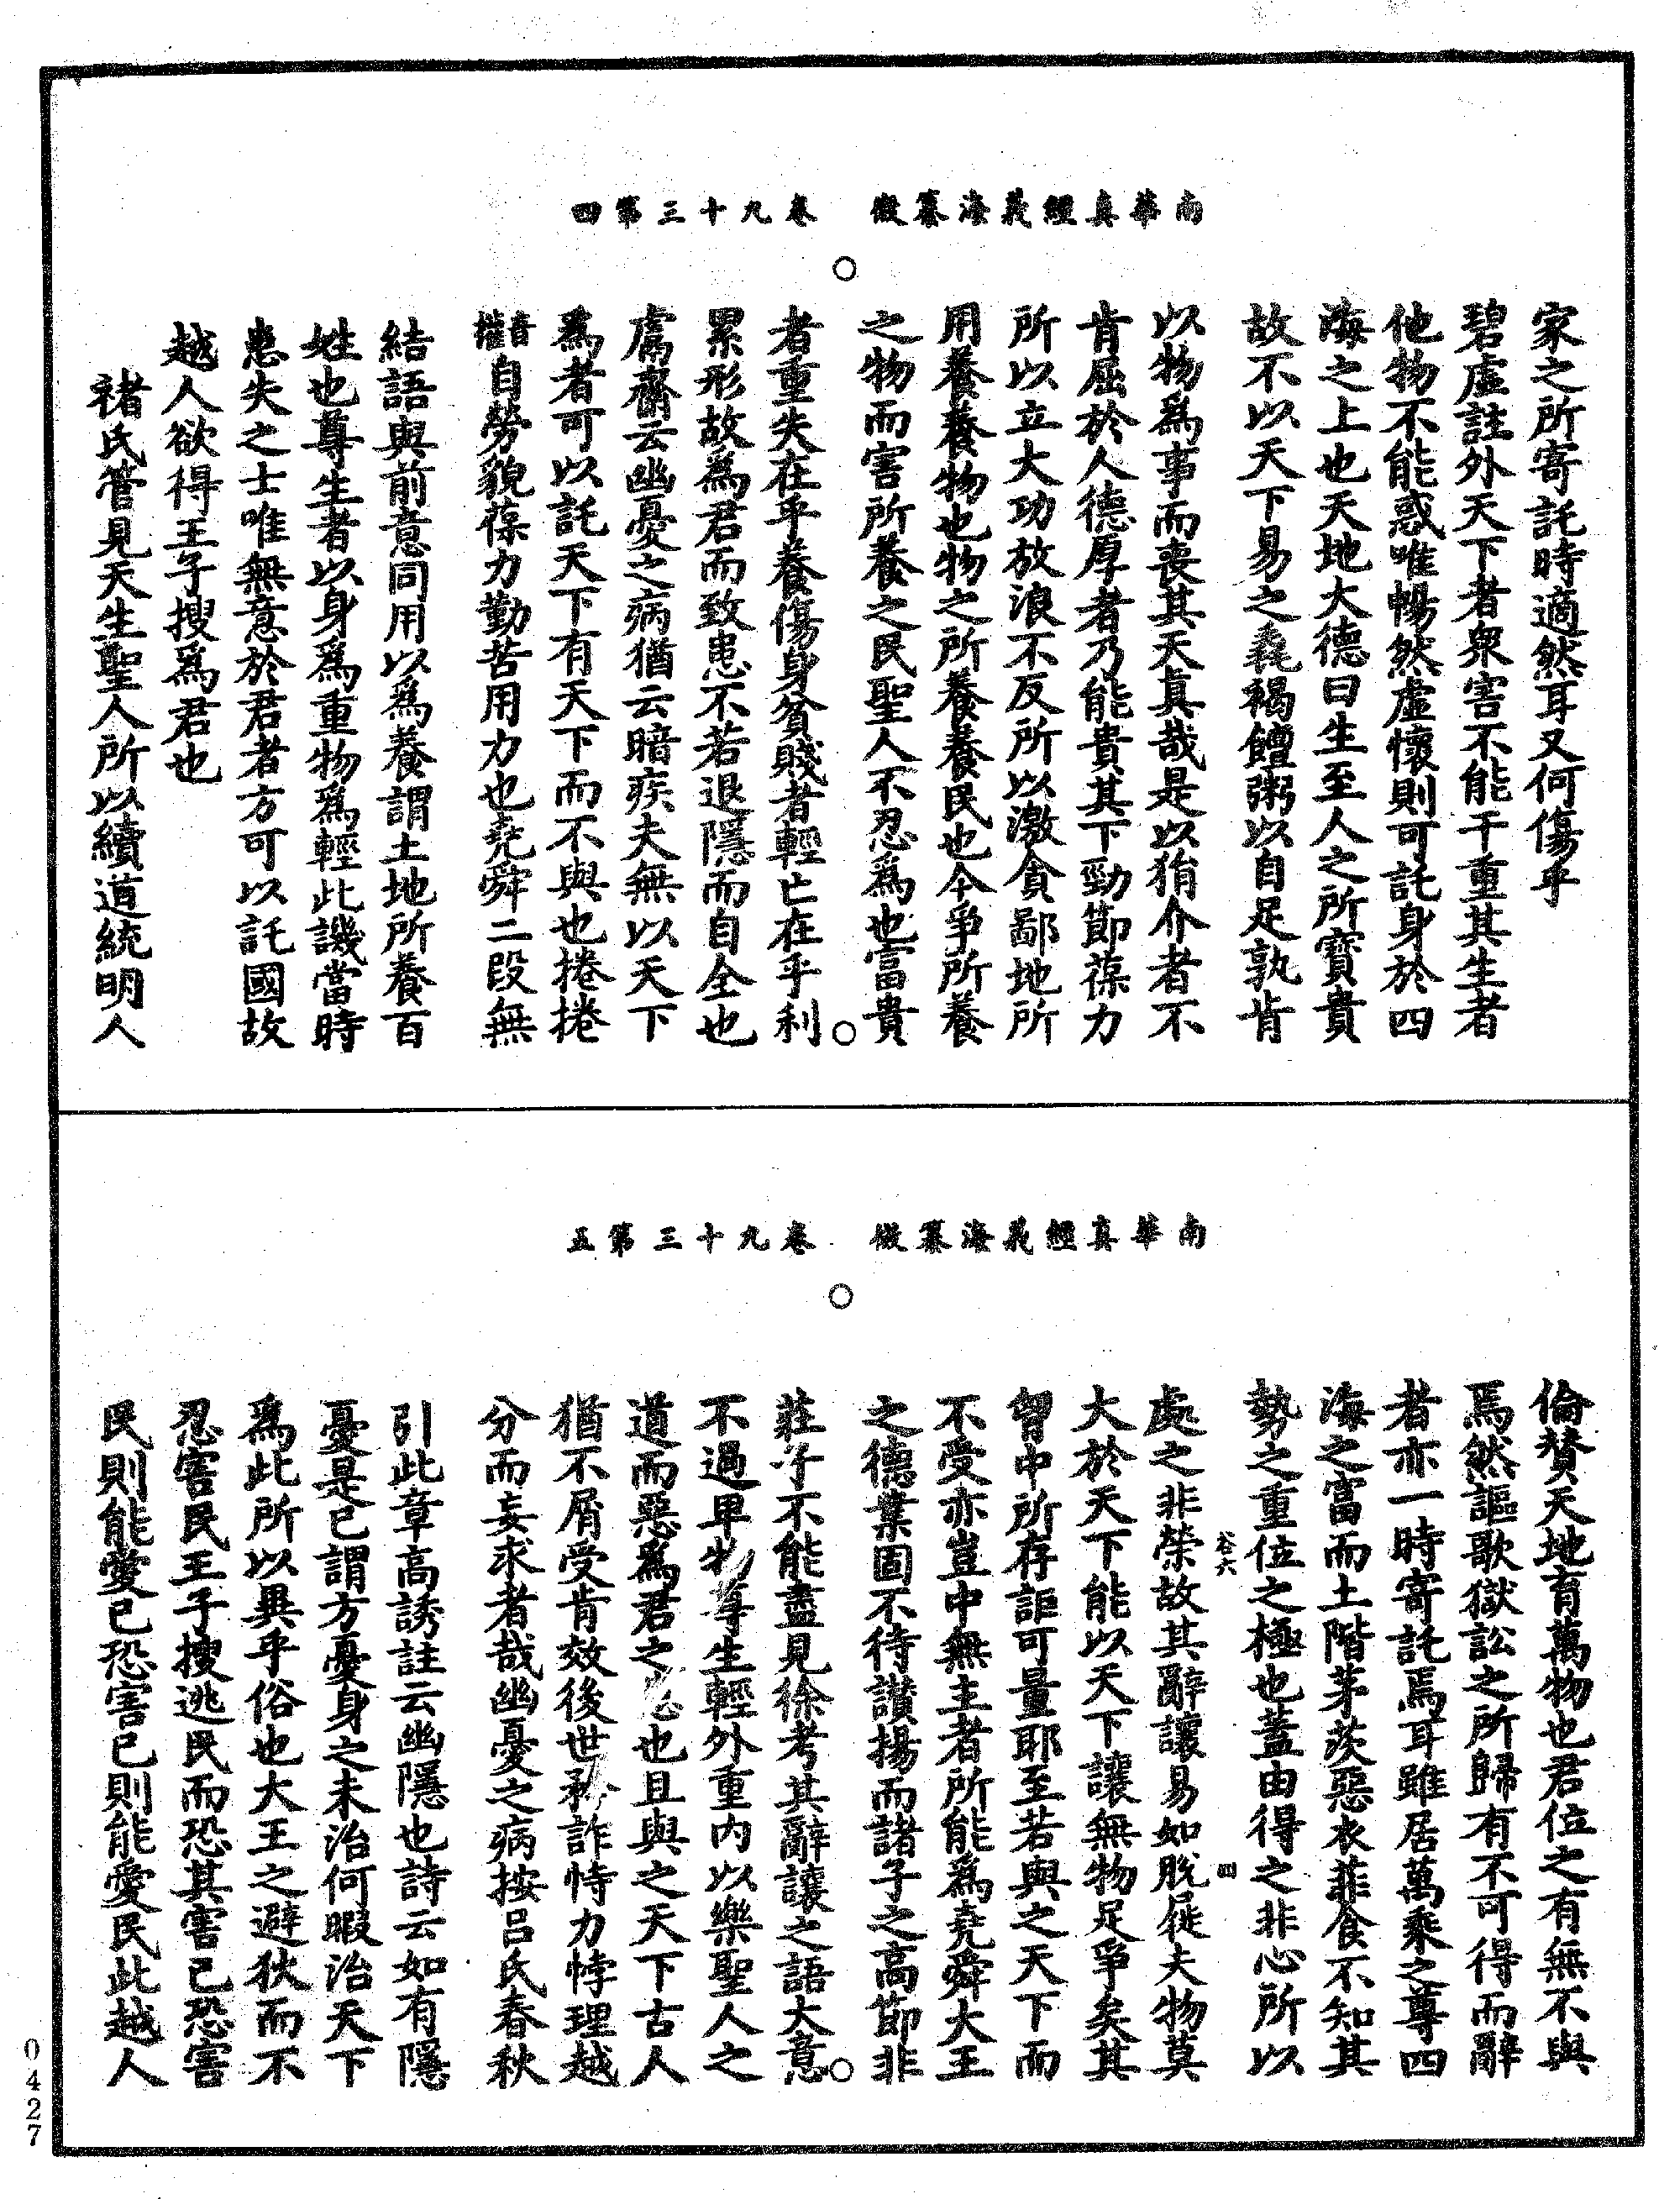 南華真經義海纂微　卷九十三第四
家之所寄託時適然耳又何傷乎
碧虛註外天下者衆害不能干重其生者
他物不能惑唯暢然虛懷則可託身於四
海之上也天地大德曰生至人之所寶貴
故不以天下易之毳褐饘粥以自足孰肯
以物爲事而喪其天真哉是以狷介者不
肯屈於人德厚者乃能貴其下勁節葆力
所以立大功放浪不反所以激貪鄙地所
用養養物也物之所養養民也今爭所養
之物而害所養之民聖人不忍爲也富貴
者重失在乎養傷身貧賤者輕亡在乎利
累形故爲君而致患不若退隱而自全也
鬳齋云幽憂之病猶云暗疾夫無以天下
爲者可以託天下有天下而不與也捲捲
音權自勞貌葆力勤苦用力也堯舜二段無
結語與前意同用以爲養謂土地所養百
姓也尊生者以身爲重物爲輕此譏當時
患失之士唯無意於君者方可以託國故
越人欲得王子搜爲君也
禇氏管見天生聖人所以續道統明人
南華真經義海纂微　卷九十三第五
倫贊天地育萬物也君位之有無不與
焉然謳歌獄訟之所歸有不可得而辭
者亦一時寄託焉耳雖居萬乘之尊四
海之富而土階茅茨惡衣菲食不知其
勢之重位之極也蓋由得之非心所以
卷六　四
處之非榮故其辭讓易如脫屣夫物莫
大於天下能以天下讓無物足爭矣其
胷中所存詎可量耶至若與之天下而
不受亦豈中無主者所能爲堯舜大王
之德業固不待讚揚而諸子之高節非
莊子不能盡見徐考其辭讓之語大意
不過卑物尊生輕外重内以樂聖人之
道而惡爲君之也且與之天下古人
猶不屑受肯效後世矜詐恃力悖理越
分而妄求者哉幽憂之病按吕氏春秋
引此章高誘註云幽隱也詩云如有隱
憂是已謂方憂身之未治何暇治天下
爲此所以異乎俗也大王之避狄而不
忍害民王子搜逃民而恐其害己恐害
民則能愛己恐害己則能愛民此越人
0427